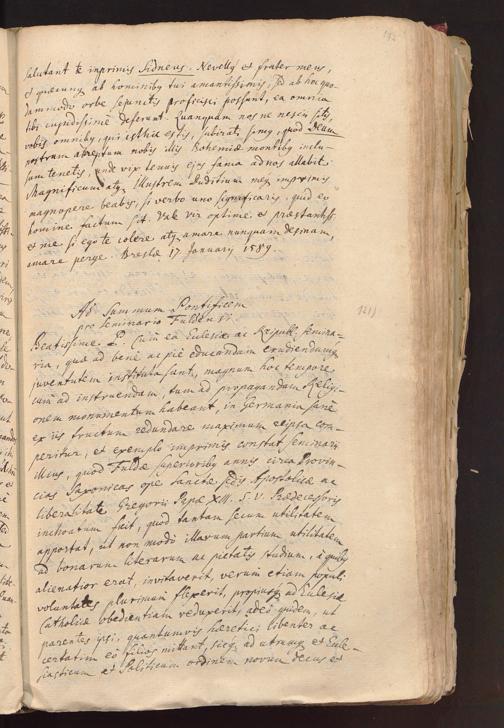 salutant te inprimis Sidneus. Nevelly et frater meus,
et quicunq ab hominibq tui amantissimis, sed ab hoc quo-
dammodo orbe sejunctis proficisci possunt, ea omnia
tibi cupidissime deferunt. Quanquam nos ne nescii sitis,
vobis omnibq, qui isthic estis, subirati simq, quod
nostrum abreptum nobis istis Bohemiæ montibq inclu-
sum tenetis, unde vix tenuis ejus fama ad nos allabit.
Magnificum atq Illustrem Duditium meis inprimis
magnopere beabis, si verbo uno significaris, quid eo
homine factum sit. Vale vir optime et præstantiss.
et me si ego te colere atq amare nunquam desinam,
amare perge. Breslæ 17 January 1589.
Ad Summum Pontificem
pro Seminario Fuldensi.
Beatissime P. Cum ea Ecclesiæ ac Reipubl. semina-
ria, quæ ad bene ac pie educandam erudiendamq
juventutem instituta sunt, magnum hoc tempore
cum ad instruendam, tum ad propagandam Religi-
onem momentum habeant, in Germania sane
ex iis fructum redundare maximum reipsa com-
peritur, et exemplo imprimis constat Seminarii
illius, quod Fuldæ superioribq annis circa Provin-
cias Saxonicas ope Sanctæ sedis Apostolicæ ac
liberalitate Gregorii Papæ XIII. S. V. Prædecessoris
inchoatum fuit, quod tantam secum utilitatem
apportat, ut non modo illarum partium utilitatem
ad bonarum literarum ac pietatis studium, a quibq
alienatior erat, invitaverit, verum etiam populi
voluntates plurimum flexerit, propiusq ad Ecclesiæ
Catholicæ obedientiam reduxerit, adeo quidem, ut
parentes ipsi, quantumvis hæretici libenter ac
certatim eo filios mittant, sicq ad utrumq et Eccle-
siasticum et Politicum ordinem novum decus et